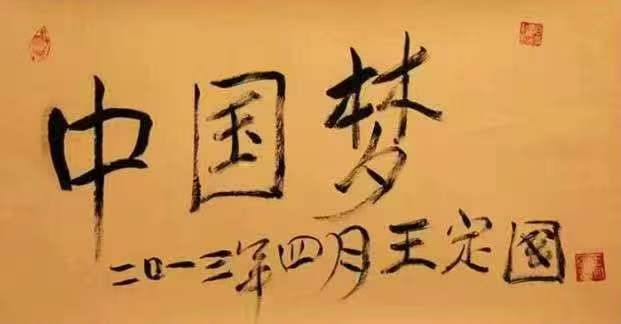 中国梦
二〇一三年四月王定國